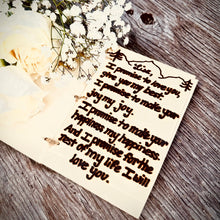 I promise to love you,
give you my heart.
I promise to make your
joy my joy.
I promise to make your
happiness my happiness.
And I promise for the
rest of my life I will
love you.